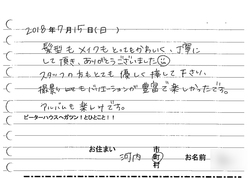 2018年7月15日(日)
髪型もメイクもとてもかわいく、丁寧に
して頂き、ありがとうございました
スタッフの方もとても優しく接して下さい、
撮影もバリエーションが豊富で楽しかったです。
アルバムも楽しみです。
ピーターハウスへガツン!とひとこと!!
お住まい 河内 市 町 村 お名前